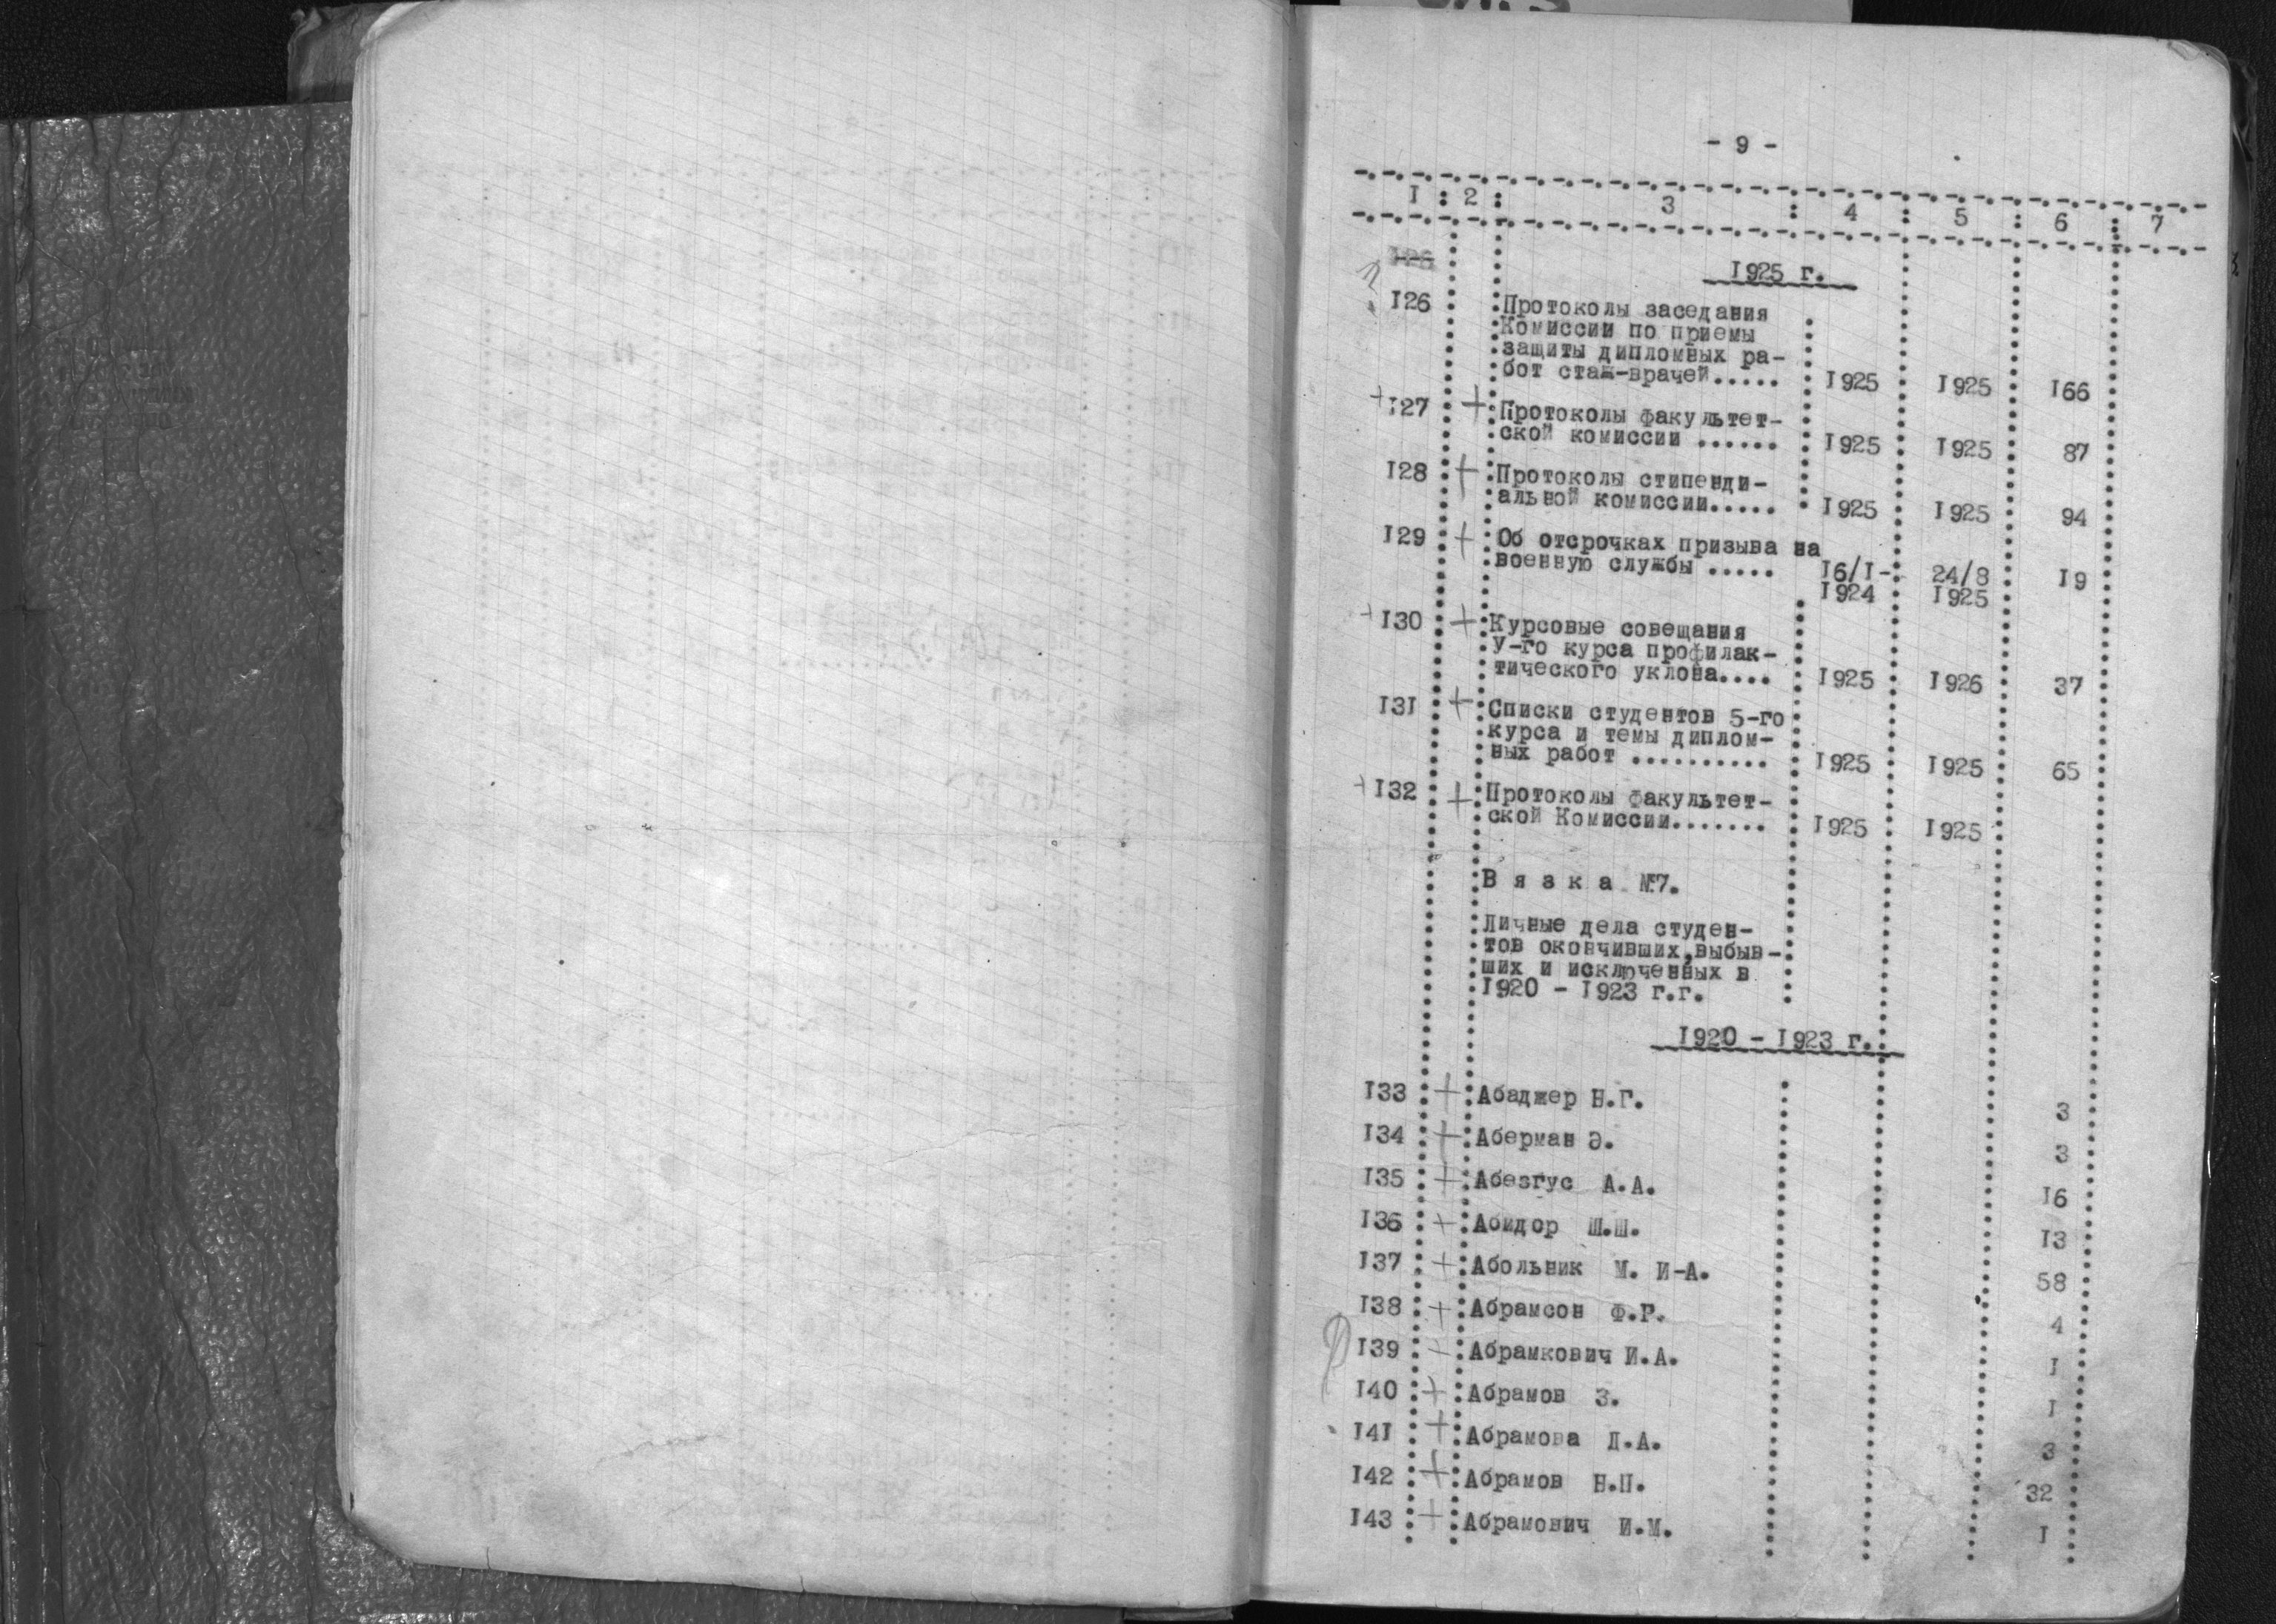 - 9 -
I : 2 : 3 : 4 : 5 : 6 : 7
126
1925 г.
I26 Протоколы заседания
Комиссии по приемы
защиты дипломвых ра-
бот стаж-врачей..... I925 I925 I66
+I27 + Протоколы факультет-
ской комиссии ...... I925 I925 87
I28 + Протоколы стипенди-
альной комиссии..... I925 I925 94
I29 + Об отсрочках призыва на
военную службы ..... I6/I- 24/8 I9
I924 I925
+I30 + Курсовые совещания
У-го курса профилак-
тического уклона.... I925 I926 37
I3I + Списки студентов 5-го
курса и темы диплом-
ных работ .......... I925 I925 65
+I32 + Протоколы факультет-
ской Комиссии....... I925 I925
В я з к а №7.
Личные дела студен-
тов окончивших,выбыв-
ших и исключенных в
I920 - I923 г.г.
I920 - I923 г.
I33 + Абаджер Н.Г. 3
I34 + Аберман Э. 3
I35 + Абезгус А.А. I6
I36 + Абидор Ш.Ш. I3
I37 + Абольник М. И-А. 58
I38 + Абрамсон Ф.Р. 4
I39 - Абрамкович И.А. I
I40 + Абрамов З. I
I4I + Абрамова Д.А. 3
I42 + Абрамов Н.П. 32
I43 + Абрамович И.М. I